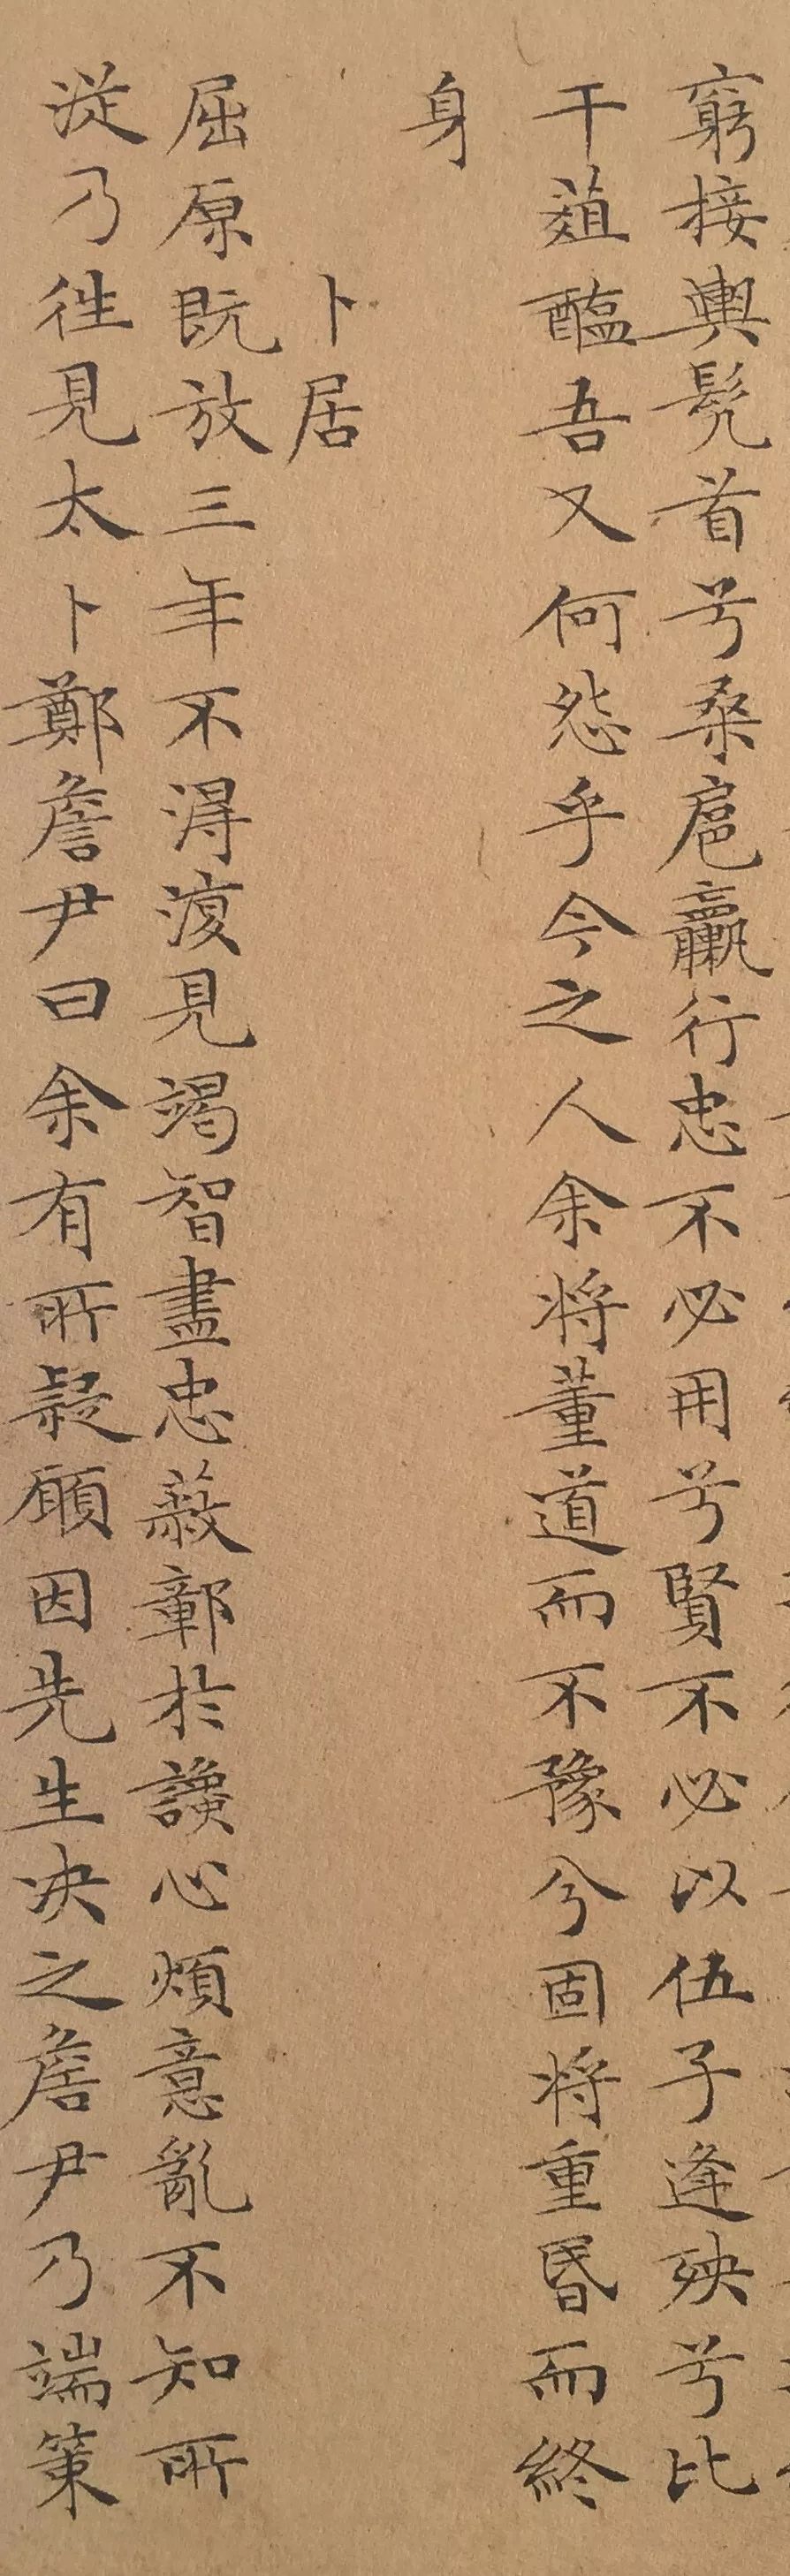 窮接輿髠首兮桑扈臝行忠不必用兮賢不必以伍子逢殃兮比
干葅醢吾又何怨乎今之人余將董道而不豫兮固將重昏而終
身
卜居
屈原既放三年不得復見竭智盡忠蔽鄣於讒心煩意亂不知所
從乃往見太卜鄭詹尹曰余有所疑願因先生決之詹尹乃端策